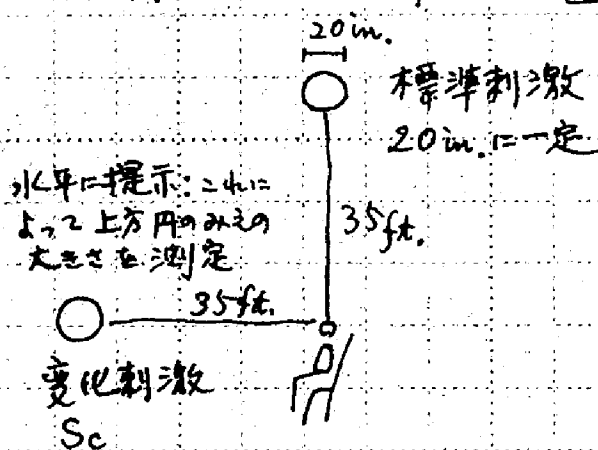 20in.
標準刺激
20in.に一定
水平に提示:これに
よって上方円のみえの
大きさを測定
35ft.
35ft.
変化刺激
Sc